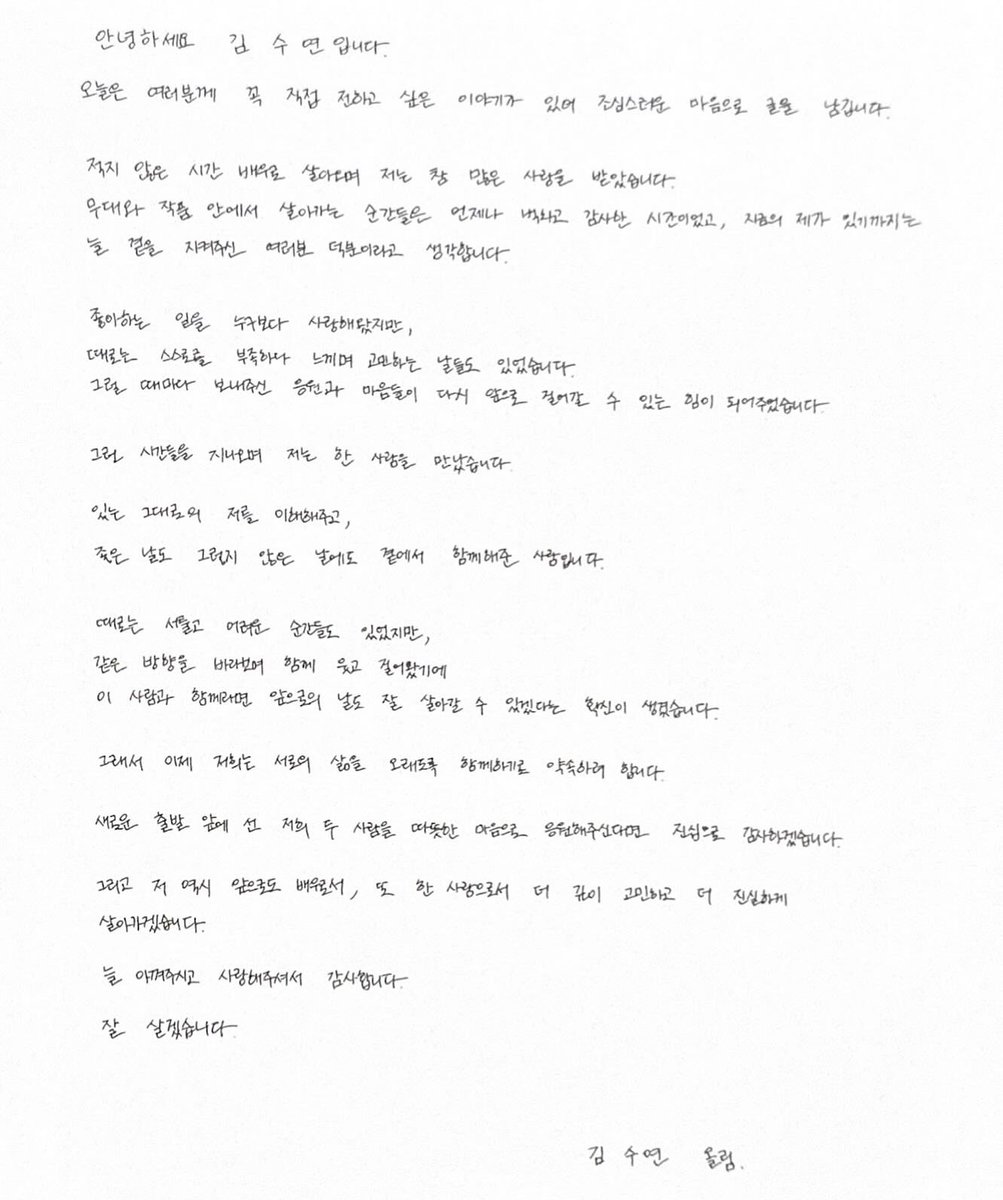 안녕하세요 김 수 연입니다.
오늘은 여러분께 꼭 직접 전하고 싶은 이야기가 있어 조심스러운 마음으로 글을 남깁니다.
적지 않은 시간 배우로 살아오며 저는 참 많은 사랑을 받았습니다.
무대와 작품 안에서 살아가는 순간들은 언제나 벅차고 감사한 시간이었고, 지금의 제가 있기까지는
늘 곁을 지켜주신 여러분 덕분이라고 생각합니다.
좋아하는 일을 누구보다 사랑해왔지만,
때로는 스스로를 부족하다 느끼며 고민하는 날들도 있었습니다.
그럴 때마다 보내주신 응원과 마음들이 다시 앞으로 걸어갈 수 있는 힘이 되어주었습니다.
그런 시간들을 지나오며 저는 한 사람을 만났습니다.
있는 그대로의 저를 이해해주고,
좋은 날도 그렇지 않은 날에도 곁에서 함께해준 사람입니다.
때로는 서툴고 어려운 순간들도 있었지만,
같은 방향을 바라보며 함께 웃고 걸어왔기에
이 사람과 함께라면 앞으로의 날도 잘 살아갈 수 있겠다는 확신이 생겼습니다.
그래서 이제 저희는 서로의 삶을 오래도록 함께하기로 약속하려 합니다.
새로운 출발 앞에 선 저희 두 사람을 따뜻한 마음으로 응원해주신다면 진심으로 감사하겠습니다.
그리고 저 역시 앞으로도 배우로서, 또 한 사람으로서 더 깊이 고민하고 더 진실하게
살아가겠습니다.
늘 아껴주시고 사랑해주셔서 감사합니다.
잘 살겠습니다.
김 수 연 올림.